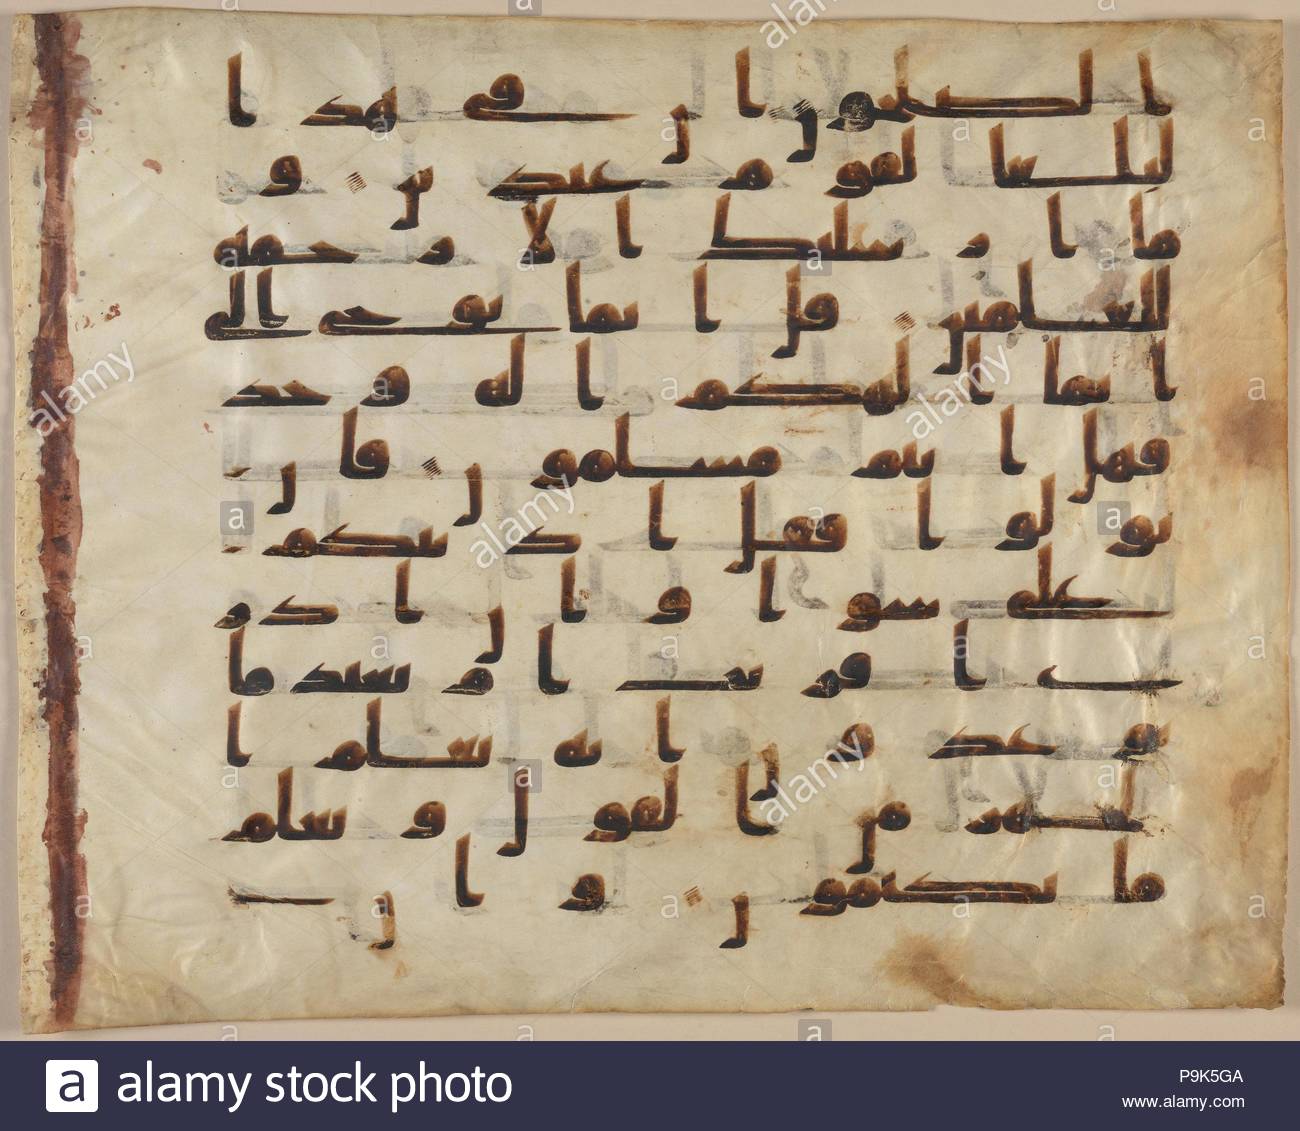 الصلحون ان في هذا
لبلغا لقوم عبدين و
ما ارسلنك الا رحمه
للعلمين قل انما يوحى الي
انما الهكم اله وحد
فهل انتم مسلمون فان
تولوا فقل اذنتكم
على سوا وان ادر
ي اقريب ام بعيد ما
توعدون انه يعلم ا
لجهر من القول ويعلم
ما تكتمون وان
alamy stock photo
P9K5GA
www.alamy.com